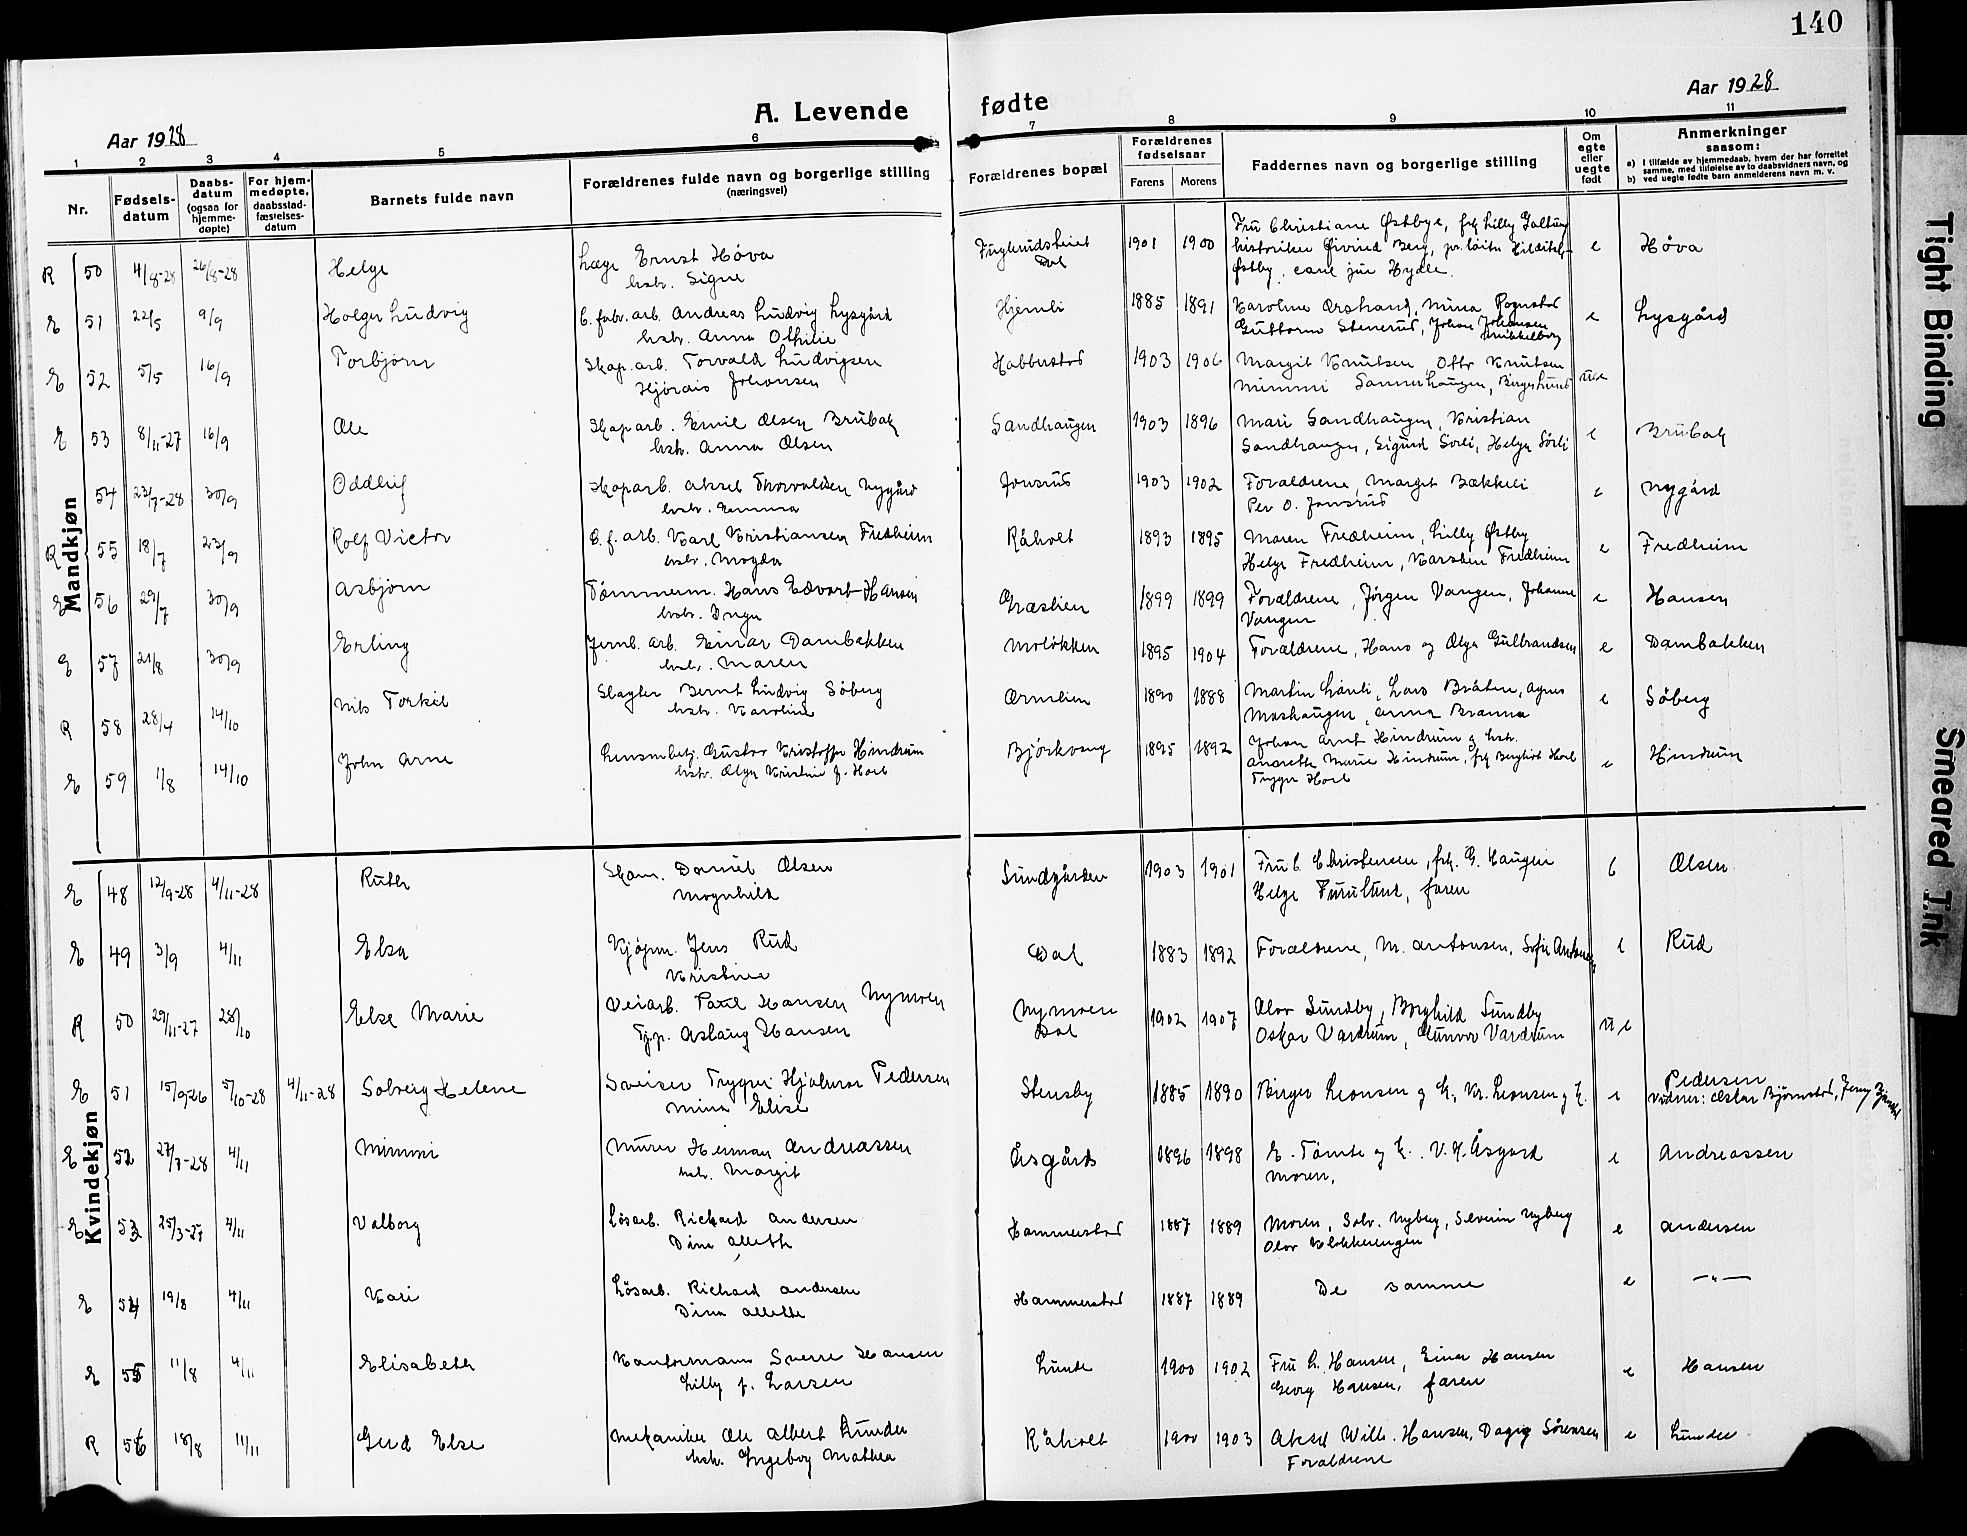 140
Aar 1928
A. Levende fødte
Aar 1928
1 2 3 4 5 6 7 8 9 10 11
Nr.
Fødsels-
datum
Daabs-
datum
(ogsaa for
hjemme-
døpte)
For hjem-
medøpte,
daabsstad-
fæstelses-
datum
Barnets fulde navn
Forældrenes fulde navn og borgerlige stilling
(næringsvei)
Forældrenes bopæl
Forældrenes
fødselsaar
Farens Morens
Faddernes navn og borgerlige stilling
Om
egte
eller
uegte
født
Anmerkninger
saasom:
a) I tilfælde av hjemmedaab, hvem der har forrettet
samme, med tilføielse av to daabsvidners navn, og
b) ved uegte fødte barn anmelderens navn m. v.
Mandkjøn
R 50 4/8-28 26/8-28 Helge Læge Ernst Høva 1901 1900 Fru Christiane Østbye, frk Lilly e Høva
hstr. Signe Dal
E 51 22/5 9/9 Holger Ludvig C. fabr. arb. Andreas Ludvig Lysgård Hjemli 1885 1891 Karoline e Lysgård
hstr. Anna Othilie Guttorm Stenerud, Johan Johansen
E 52 5/5 16/9 Torbjørn Skap. arb. Torvald Ludvigsen Habberstad 1903 1906 Margit Knutsen, Otto Knutsen u e
Hjørdis Johansen Mimmi Sannerhaugen, Birger Lund
E 53 8/11-27 16/9 Ole Skaparb. Emil Olsen Brubak Sandhaugen 1903 1896 Mari Sandhaugen, Kristian e Brubak
hstr. Anna Olsen Sandhaugen, Sigurd Sørli, Helga Sørli
54 23/7-28 30/9 Oddleif Skaparb. Aksel Thorvaldsen Nygård Jønsrud 1903 1902 Forældrene, Margit Bækkeli e Nygård
hstr. Emma Per O. Jønsrud
R 55 18/7 23/9 Rolf Victor C. f. arb. Karl Kristiansen Fredheim Råholt 1893 1895 Maren Fredheim, Lilly Østby e Fredheim
hstr. Magda Helge Fredheim, Karsten Fredheim
E 56 29/7 30/9 Asbjørn Tømmerm. Hans Edvart Hansen 1899 1899 Forældrene, Jørgen Vangen, Johanne e Hansen
hstr. Inga Vangen
E 57 21/8 30/9 Erling Jernb. arb. Einar Dambakken Moløkken 1895 1904 Forældrene, Hans og Olga Gulbrandsen e Dambakken
hstr. Maren
R 58 28/4 14/10 Nils Torkil Slagter Bernt Ludvig Søberg Ormlien 1890 1888 Martin Lånli, Lars Bråten, Agnes e Søberg
hstr. Karoline Moshaugen, Anna Branna
E 59 1/8 14/10 John Arne Lensmbetj. Gustav Kristoffer Hindrum Bjørkvang 1895 1892 Johan Arnt Hindrum og hstr. e Hindrum
hstr. Olga Kristine f. Hoel Anarette Marie Hindrum, frk Borghild Hoel
Trygve Hoel
Kvindekjøn
E 48 12/9-28 4/11-28 Ruth Skom. Daniel Olsen Sundgården 1903 1901 Fru C. Christensen, frk. G. Haugen e Olsen
Magnhild Helge Furulund, faren
E 49 3/9 4/11 Elsa Kjøpm. Jens Rud Dal 1883 1892 Forældrene, M. Antonsen, Sofie Antonsen e Rud
Kristine
R 50 29/11-27 28/10 Else Marie Veiarb. Paul Hansen Nymoen Nymoen 1902 1907 Olav Sundby, Borghild Sundby u e
Tj.p. Aslaug Hansen Dal Oskar Vardrum, Gunvor Vardrum
E 51 15/9-26 5/10-28 4/11-28 Solveig Helene Sveiser Trygve Hjalmar Pedersen Stensby 1885 1890 Birger Leonsen g k., Kr. Leonsen g k. e Pedersen
Mina Elise Vidner: Oskar Bjørnstad, Jenny
E 52 27/7-28 4/11 Mimmi Murer Herman Andreassen Åsgård 1896 1898 E. Tømte og k. V. H. Åsgård e Andreassen
hstr. Margit moren.
E 53 25/3-27 4/11 Valborg Løsarb. Rickard Andersen Hammerstad 1887 1889 Moren, Solv. Nyberg, Severin Nyberg e Andersen
Dina Alette Olav Klokkerengen
E 54 19/8 4/11 Kari Løsarb. Rickard Andersen Hammerstad 1887 1889 De samme e —"—
Dina Alette
E 55 11/8 4/11 Elisabeth Kontormann Sverre Hansen Lunde 1900 1902 Fru L. Hansen, Einar Hansen e Hansen
Lilly f. Larsen Georg Hansen, faren
R 56 18/8 11/11 Gud Else Mekaniker Ole Albert Lunder Råholt 1900 1903 Aksel Wilh. Hansen, Dagny Sørensen e Lunder
hstr. Ingeborg Mathea Forældrene
Tight Binding
Smeared Ink